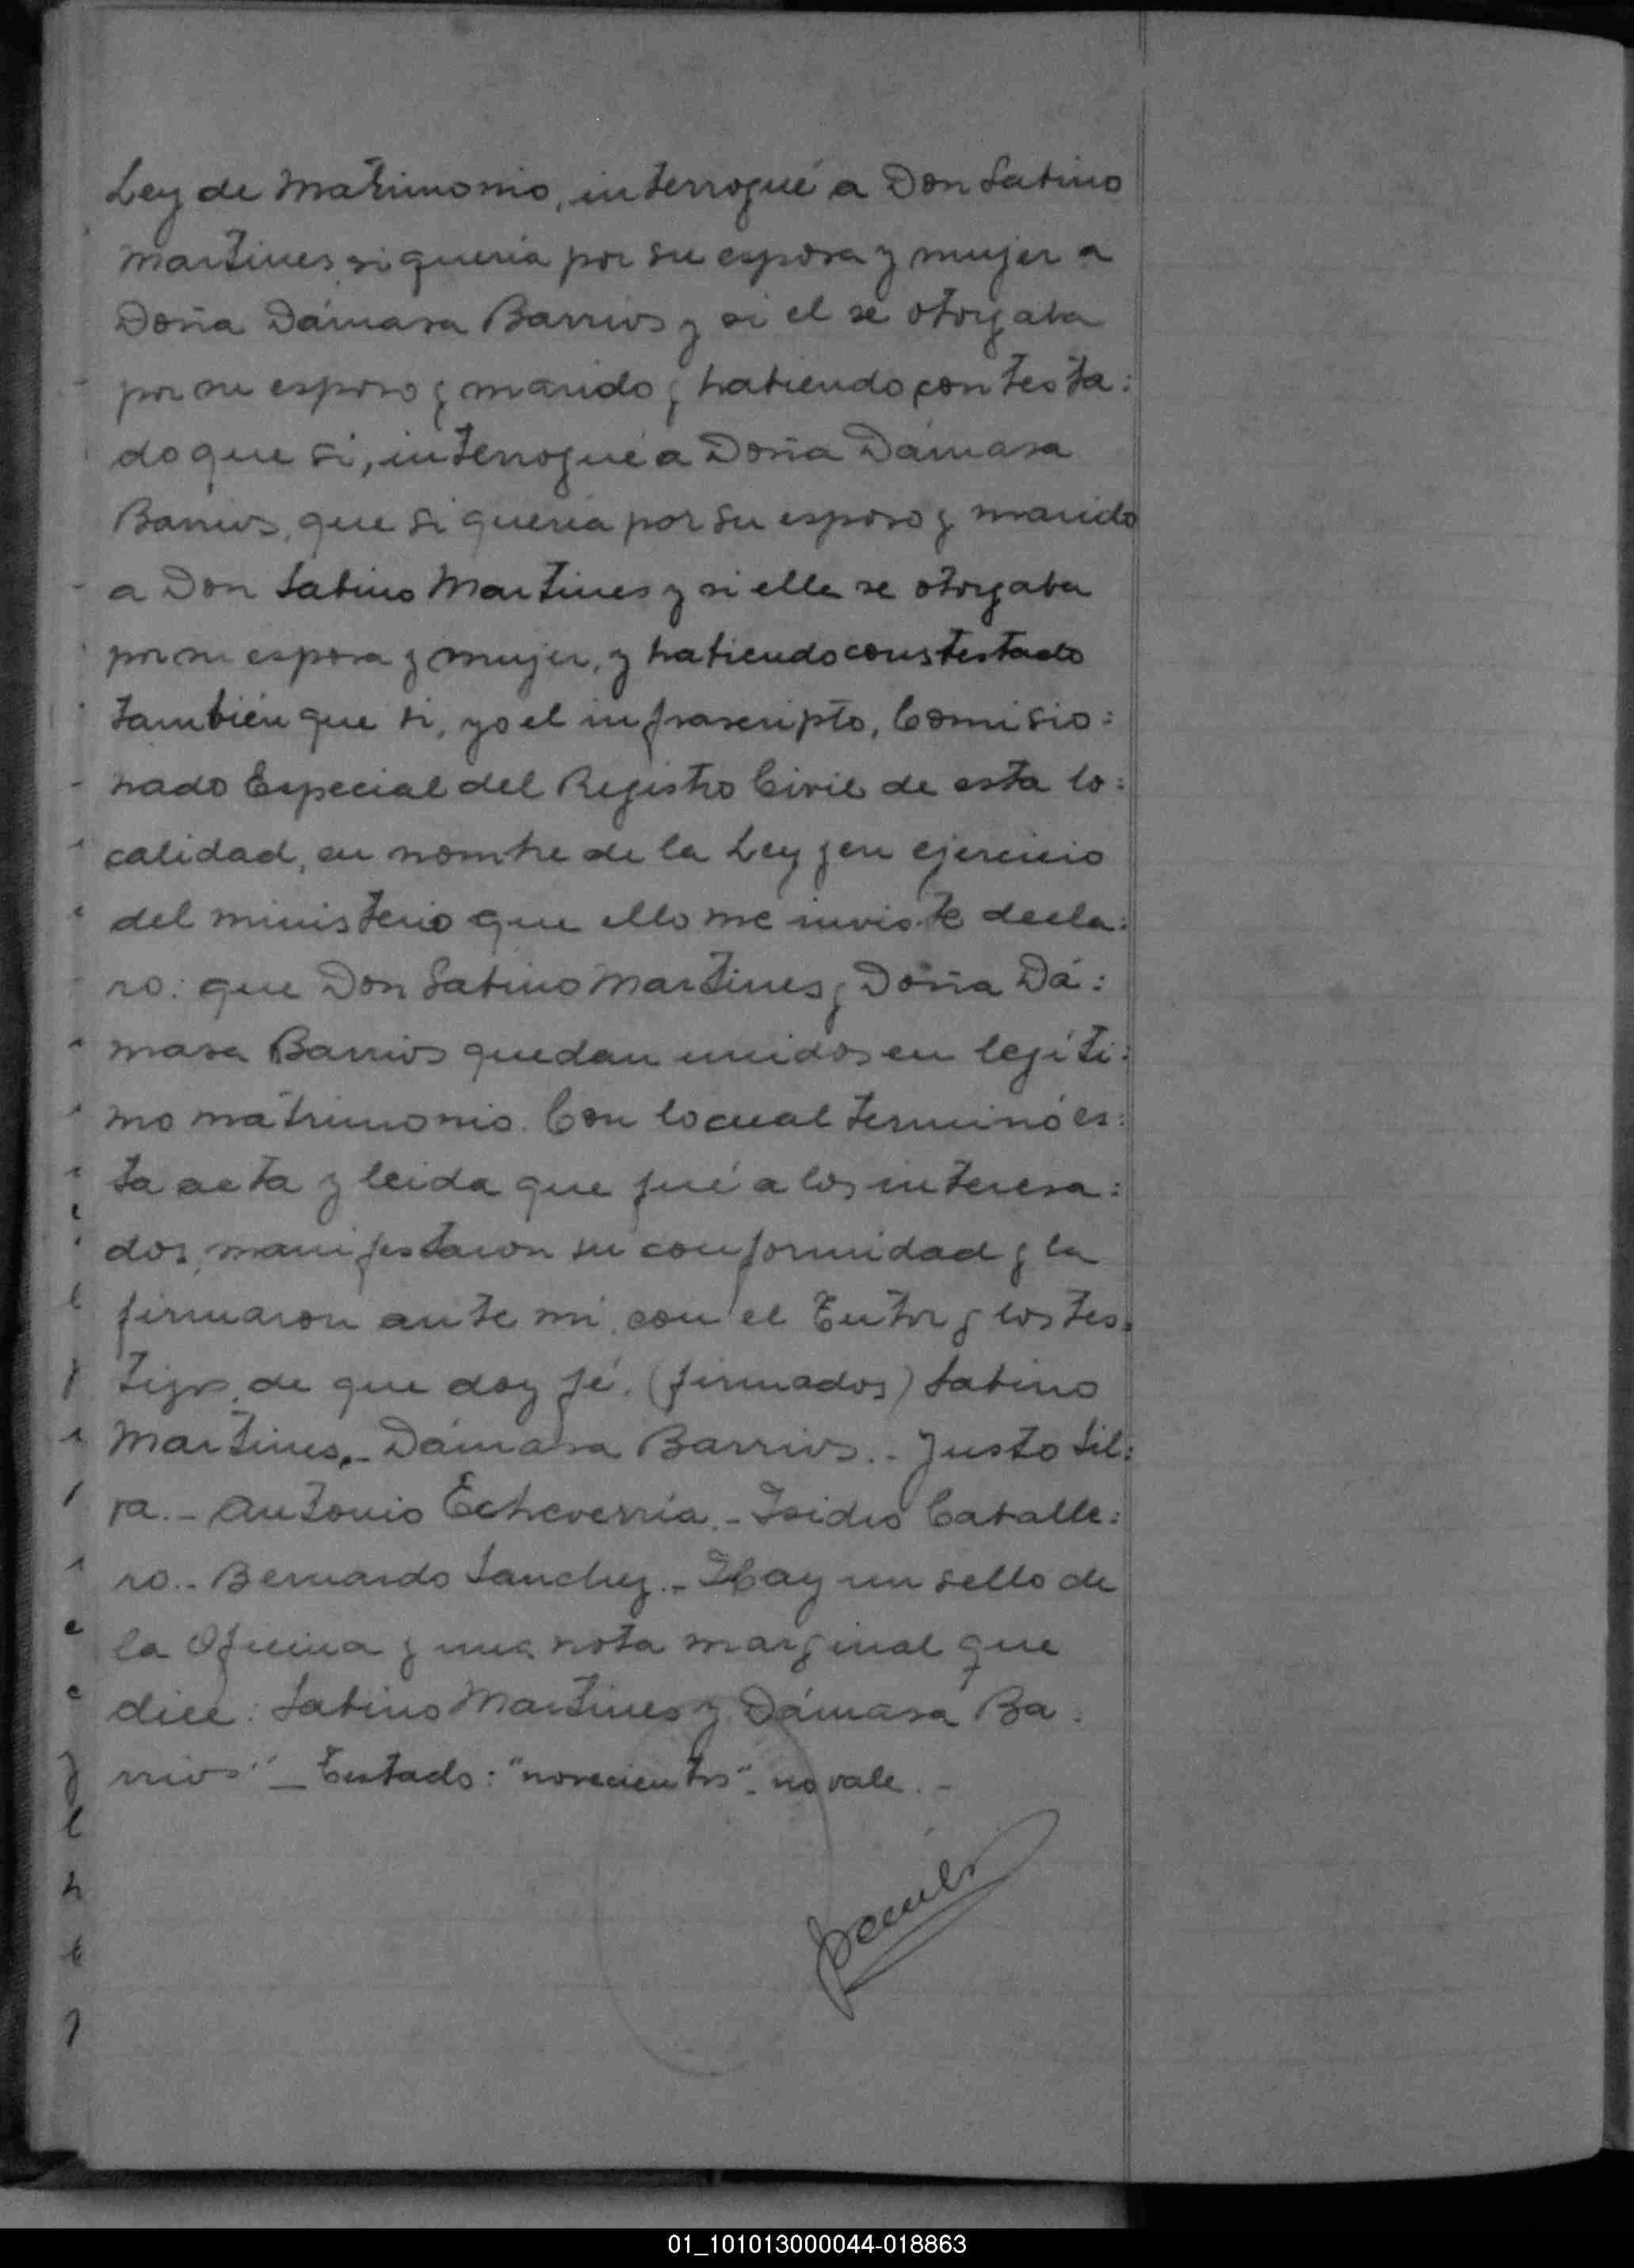 Ley de Matrimonio, interrogué a Don Sabino
Martines, si queria por su esposa y mujer a
Doña Dámasa Barrios y si el se otorgaba
por su esposo y marido y habiendo contesta:
do que si, interrogué a Doña Dámasa
Barrios, que si queria por su esposo y marido
a Don Sabino Martines y si ella se otorgaba
por su esposa y mujer, y habiendo constestado
también que si, yo el infrascripto, Comisio:
nado Especial del Registro Civil de esta lo:
calidad, en nombre de la Ley y en ejercicio
del ministerio que ello me inviste decla:
ro: que Don Sabino Martines y Doña Dá:
masa Barrios quedan unidos en legíti:
mo matrimonio. Con lo cual terminó es:
ta acta y leida que fué a los interesa:
dos, manifestaron su conformidad y la
firmaron ante mi, con el Tutor y los tes:
tigos, de que doy fé. (firmados) Sabino
Martines.- Dámasa Barrios.- Justo Sil:
va.- Antonio Echeverría.- Isidro Caballe:
ro.- Bernardo Sanchez.- Hay un sello de
la Oficina y una nota marginal que
dice: Sabino Martines y Dámasa Ba:
rrios" - Testado: "novecientos". no vale.-
01_101013000044-018863